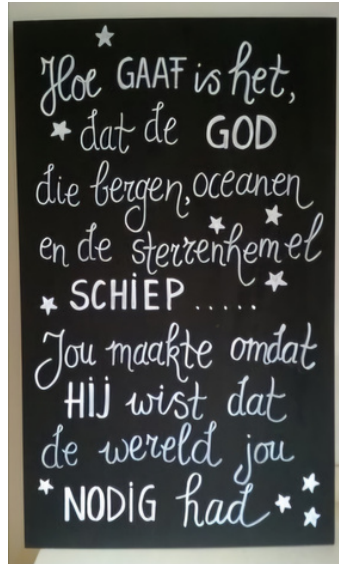 Hoe GAAF is het,
dat de GOD
die bergen, oceanen
en de sterrenhemel
SCHIEP.....
Jou maakte omdat
HIJ wist dat
de wereld jou
NODIG had